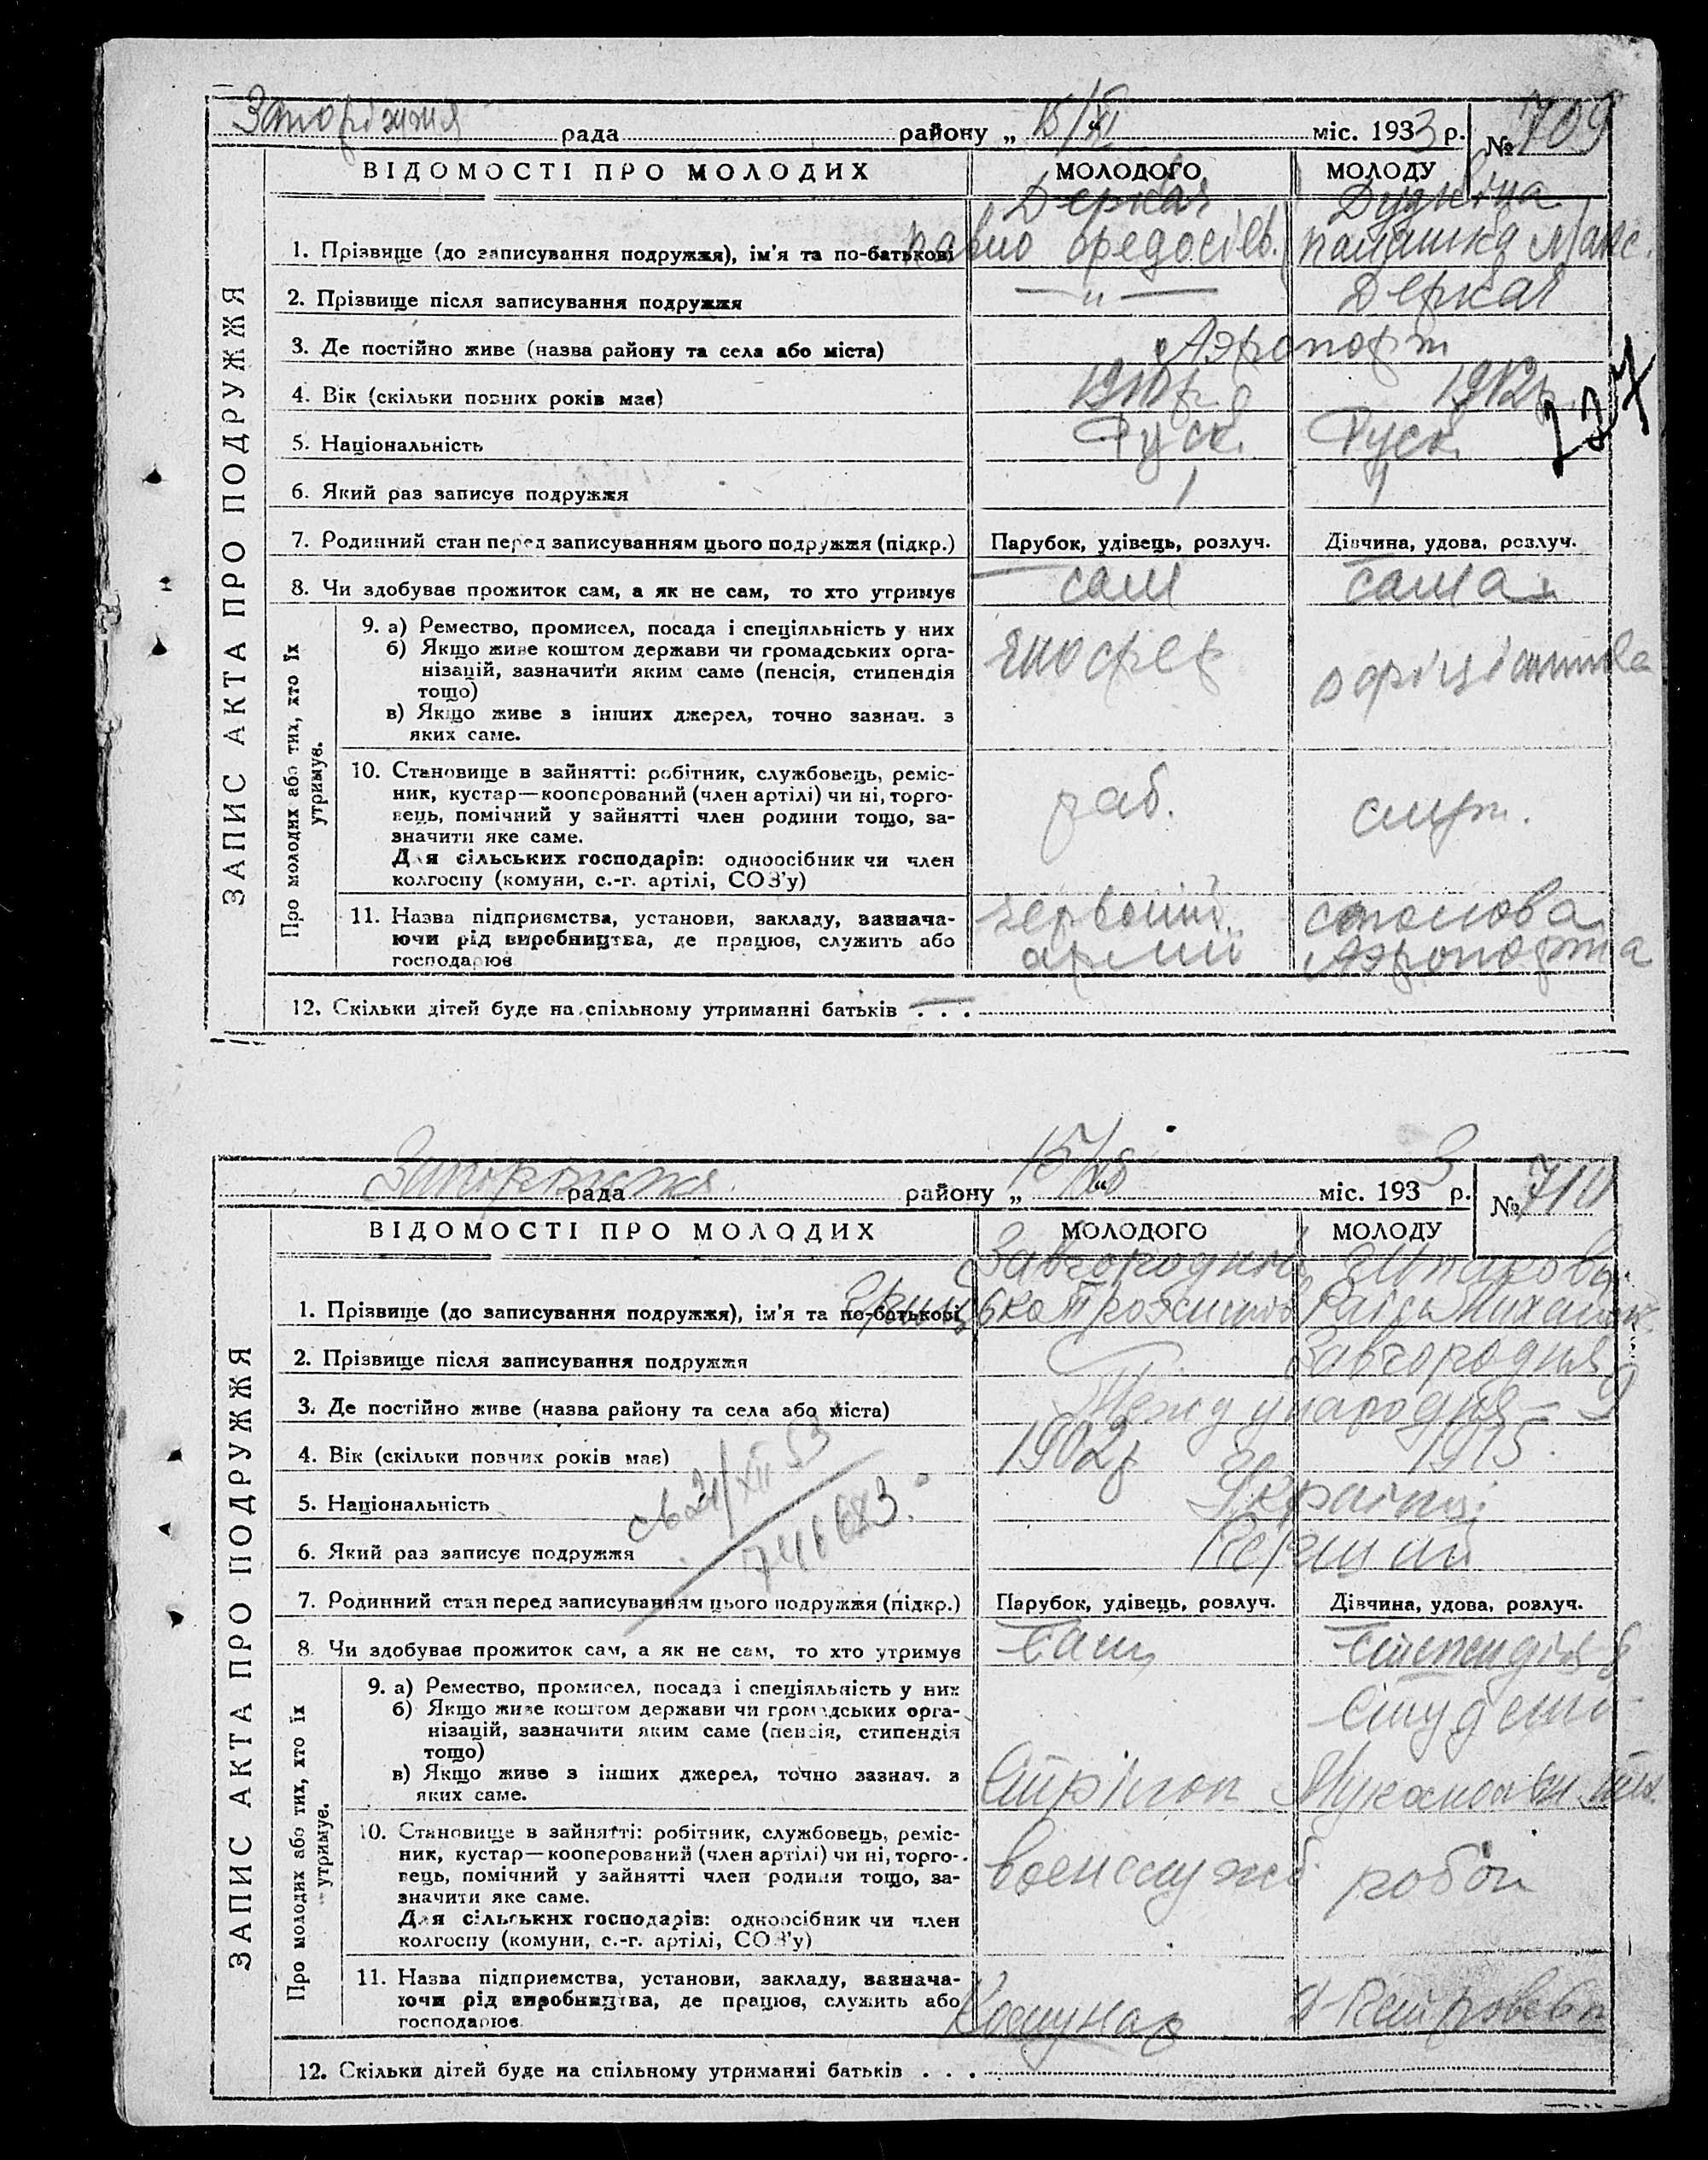 Запоріжжя рада району „ 15/XI “ міс. 1933 р. № 709
ЗАПИС АКТА ПРО ПОДРУЖЖЯ
ВІДОМОСТІ ПРО МОЛОДИХ МОЛОДОГО МОЛОДУ
Деркач
1. Прізвище (до записування подружжя), ім'я та по-батькові Павло
2. Прізвище після записування подружжя — " — Деркач
3. Де постійно живе (назва району та села або міста) Аэропорт
4. Вік (скільки повних років має) 1910р 1912р.
5. Національність Руск. Руск.
227
6. Який раз записує подружжя 1 1
7. Родинний стан перед записуванням цього подружжя (підкр.) Парубок, удівець, розлуч. Дівчина, удова, розлуч.
8. Чи здобуває прожиток сам, а як не сам, то хто утримує сам сама
Про молодих або тих, хто їх утримує.
9. а) Ремество, промисел, посада і спеціяльність у них
б) Якщо живе коштом держави чи громадських орга-
нізацій, зазначити яким саме (пенсія, стипендія
тощо)
в) Якщо живе з інших джерел, точно зазнач. з
яких саме.
шофер офіціантка
10. Становище в зайнятті: робітник, службовець, реміс-
ник, кустар—кооперований (член артілі) чи ні, торго-
вець, помічний у зайнятті член родини тощо, за-
значити яке саме.
Для сільських господарів: одноосібник чи член
колгоспу (комуни, с.-г. артілі, СОЗ'у)
раб. служ.
11. Назва підприємства, установи, закладу, зазнача-
ючи рід виробництва, де працює, служить або
господарює
армии
столова
Аэропорта
12. Скільки дітей буде на спільному утриманні батьків . . . —
Запоріжжя рада району „ 15/ “ міс. 1933 р. № 710
ЗАПИС АКТА ПРО ПОДРУЖЖЯ
ВІДОМОСТІ ПРО МОЛОДИХ МОЛОДОГО МОЛОДУ
Завгородній Шпакова
1. Прізвище (до записування подружжя), ім'я та по-батькові Грицько Раіса
2. Прізвище після записування подружжя Завгородня
3. Де постійно живе (назва району та села або міста)
4. Вік (скільки повних років має) 1902р 1915
св 21/XII 53
746683
5. Національність Українці
6. Який раз записує подружжя Перший
7. Родинний стан перед записуванням цього подружжя (підкр.) Парубок, удівець, розлуч. Дівчина, удова, розлуч.
8. Чи здобуває прожиток сам, а як не сам, то хто утримує сам стипендія
Про молодих або тих, хто їх утримує.
9. а) Ремество, промисел, посада і спеціяльність у них
б) Якщо живе коштом держави чи громадських орга-
нізацій, зазначити яким саме (пенсія, стипендія
тощо)
в) Якщо живе з інших джерел, точно зазнач. з
яких саме.
10. Становище в зайнятті: робітник, службовець, реміс-
ник, кустар—кооперований (член артілі) чи ні, торго-
вець, помічний у зайнятті член родини тощо, за-
значити яке саме.
Для сільських господарів: одноосібник чи член
колгоспу (комуни, с.-г. артілі, СОЗ'у)
военслужб.
11. Назва підприємства, установи, закладу, зазнача-
ючи рід виробництва, де працює, служить або
господарює
Комунар
12. Скільки дітей буде на спільному утриманні батьків . . .